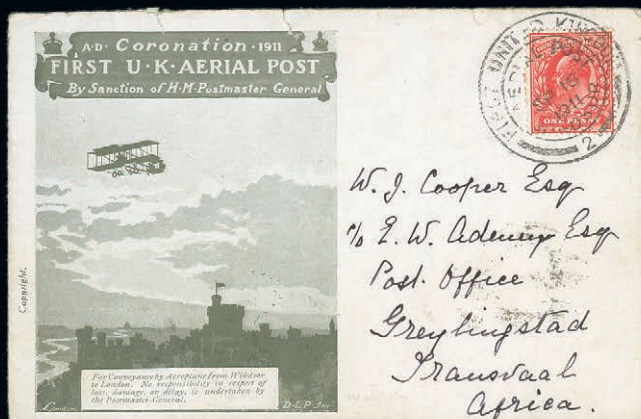 A·D· Coronation · 1911
FIRST U·K·AERIAL POST
By Sanction of H·M·Postmaster General
Copyright.
For Conveyance by Aeroplane from Windsor
to London. No responsibility in respect of
loss, damage, or delay, is undertaken by
the Postmaster-General.
London
FIRST UNITED KINGDOM
AERIAL POST
1911
2
ONE PENNY
W. J. Cooper Esq
c/o E. W. Adenuy Esq
Post Office
Greylingstad
Transvaal
Africa.